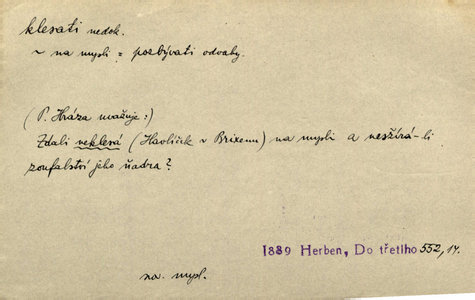 klesati nedok.
~ na mysli = pozbývati odvahy.
(P. Hráza uvažuje:)
Zdali neklesá (Havlíček v Brixenu) na mysli a nesžírá-li
zoufalství jeho ňadra?
1889 Herben, Do třetího 552, 14.
na. mysl.